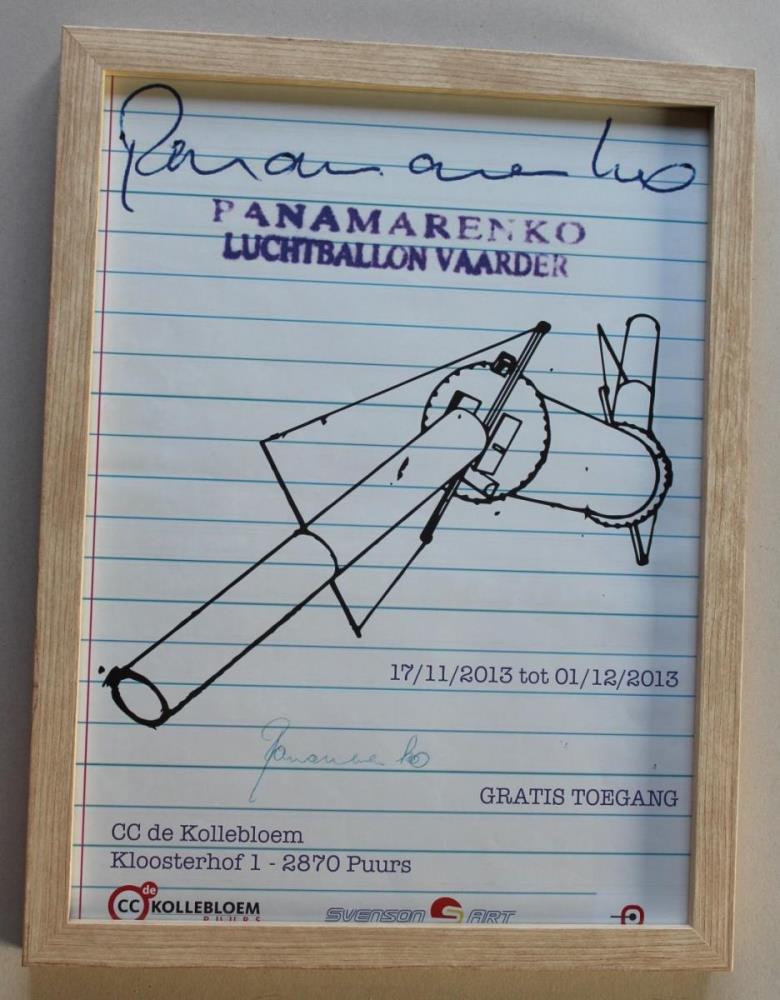 Panamarenko
PANAMARENKO
LUCHTBALLON VAARDER
17/11/2013 tot 01/12/2013
Panamarenko
GRATIS TOEGANG
CC de Kollebloem
Kloosterhof 1 - 2870 Puurs
CC de KOLLEBLOEM
PUURS
SVENSON ART